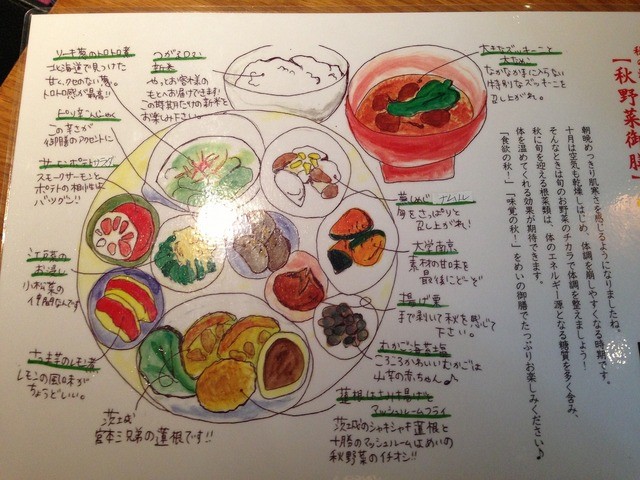 【秋野菜御膳】
朝晩めっきり肌寒さを感じるようになりましたね。
十月は空気も乾燥しはじめ、体調を崩しやすくなる時期です。
そんなときは旬のお野菜のチカラで体調を整えましょう！
秋に旬を迎える根菜類は、体のエネルギー源となる糖質を多く含み、
体を温めてくれる効果が期待できます。
「食欲の秋！」「味覚の秋！」をめいの御膳でたっぷりお楽しみください♪
リーキ葱のトロトロ煮
北海道で見つけた
甘く、クセのない葱。
トロトロ感が最高!!
つがるロマン
新米
やっとお客様の
もとへお届けできます!
この時期だけの新米を
お楽しみ下さい。
大きなズッキーニと
なかなか手に入らない
特別なズッキーニを
召し上がれ。
ピリ辛こんにゃく
この辛さが
御膳のアクセントに
サーモンポテトサラダ
スモークサーモンと
ポテトの相性は
バツグン!!
ナムル
召し上がれ!
大学南京
素材の甘味を
最後にどーぞ
江戸菜の
お浸し
小松菜の
揚げ栗
手で剥いて秋を感じて
下さい。
むかご海苔塩
ころころかわいいむかごは
山芋の赤ちゃん♪
さつま芋のレモン煮
レモンの風味が
ちょうどいい。
茨城
宮本三兄弟の蓮根です!!
蓮根はさみ揚げと
マッシュルームフライ
茨城のシャキシャキ蓮根と
十勝のマッシュルームはめいの
秋野菜のイチオシ!!